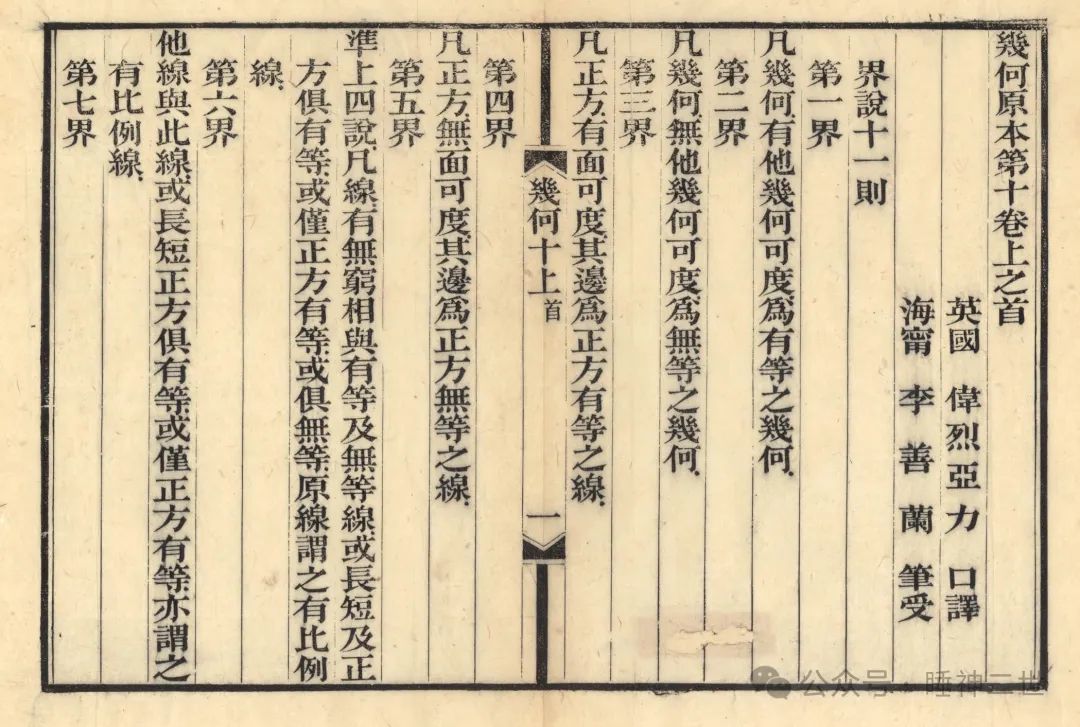 幾何原本第十卷上之首
英國 偉烈亞力 口譯
海甯 李善蘭 筆受
界說十一則
第一界
凡幾何有他幾何可度爲有等之幾何
第二界
凡幾何無他幾何可度爲無等之幾何
第三界
凡正方有面可度其邊爲正方有等之線
幾何十上 首 一
第四界
凡正方無面可度其邊爲正方無等之線
第五界
準上四說凡線有無窮相與有等及無等線或長短及正
方俱有等或僅正方有等或俱無等原線謂之有比例
線
第六界
他線與此線或長短正方俱有等或僅正方有等亦謂之
有比例線
第七界
公众号·睡神三世